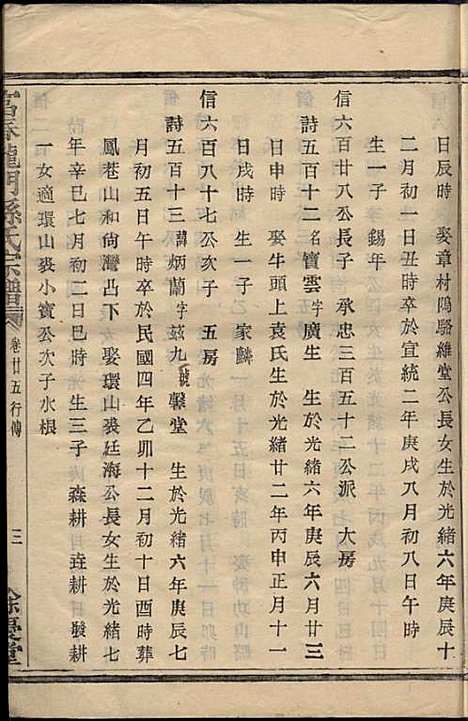 日辰時　娶章村隖駱維堂公長女生於光緒六年庚辰十
二月初一日丑時卒於宣統二年庚戌八月初八日午時
生一子　錫年
信六百廿八公長子　承忠三百五十二公派　大房
詩五百十二名寶雲字廣生　生於光緒六年庚辰六月廿三
日申時　娶牛頭上袁氏生於光緒廿二年丙申正月十一
日戌時　生一子　家麟
信六百八十七公次子　五房
詩五百十三諱炳蘭字茲九號馨堂　生於光緒六年庚辰七
月初五日午時卒於民國四年乙卯十二月初十日酉時葬
鳳巷山和尙灣凸下　娶環山裘廷海公長女生於光緒七
年辛巳七月初二日巳時　生三子　森耕　垚耕　發耕
一女適環山裘小寶公次子水根
富春龍門孫氏宗譜　卷廿五行傳　三　餘慶堂